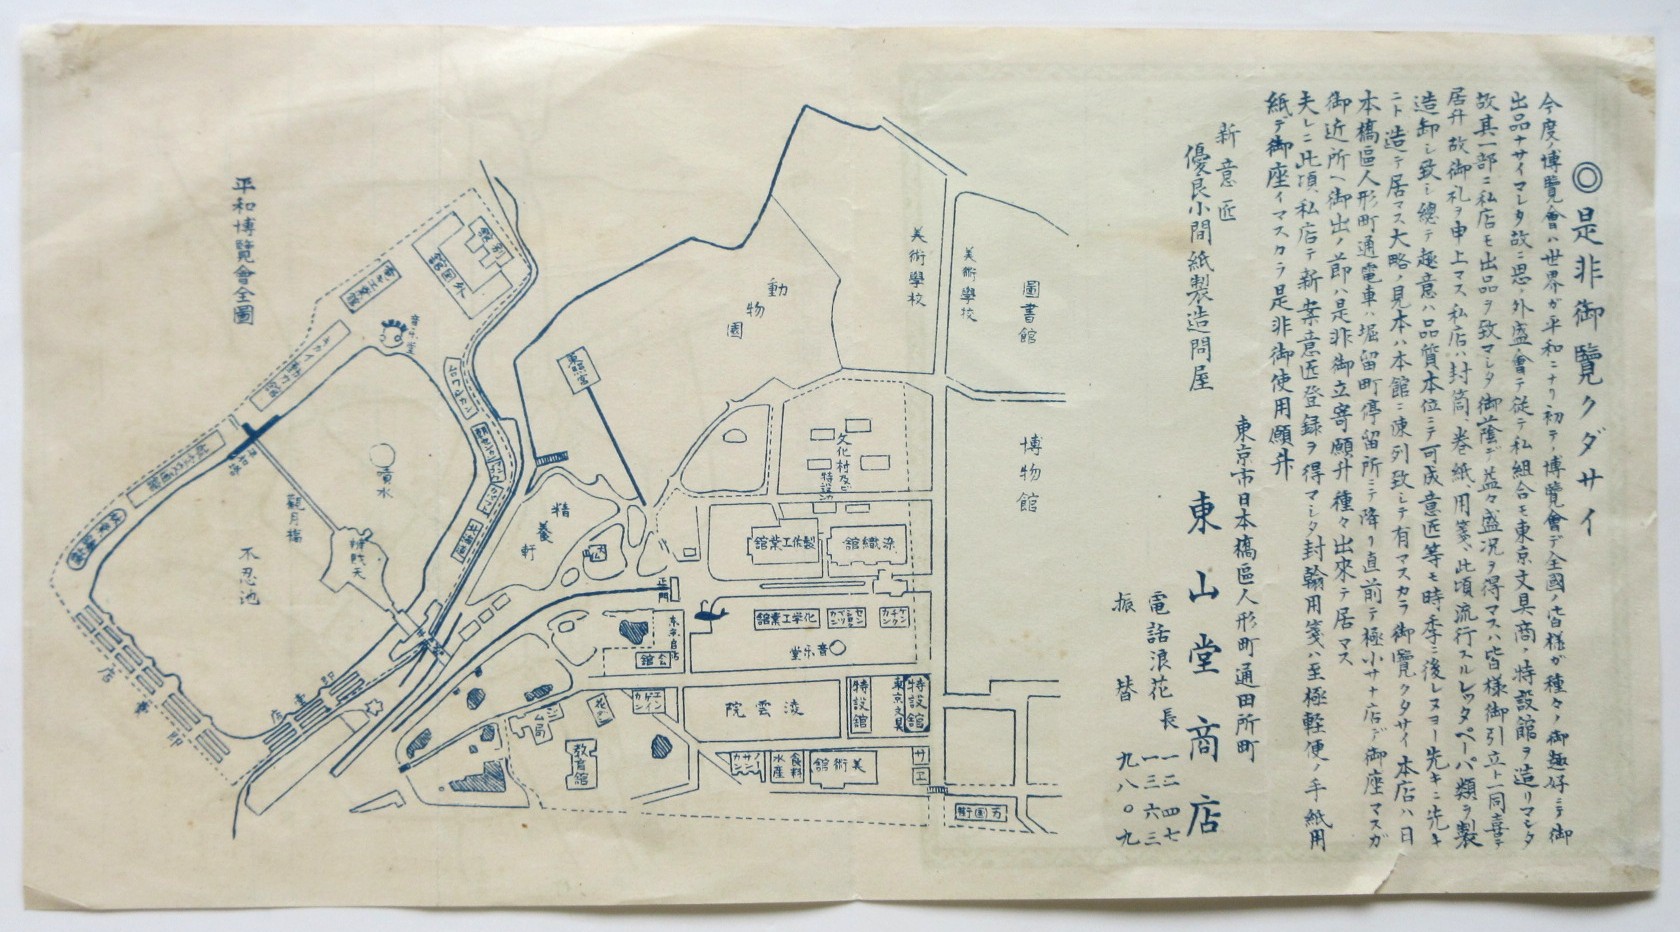 ◎是非御覽クダサイ
今度ノ博覽會ハ世界ガ平和ニナリ初テノ博覽會デ全國ノ皆様ガ種々ノ御趣好ニテ御
出品ナサイマシタ故ニ思ノ外盛會テ従テ私組合モ東京文具商ノ特設館ヲ造リマシタ
故其一部ニ私店モ出品ヲ致マシタ御蔭デ益々盛况ヲ得マスハ皆様御引立ト一同喜テ
居升故御礼ヲ申上マス私店ハ封筒、巻紙、用箋、此頃流行スルレッタペーパ類ヲ製
造卸シ致シ總テ趣意ハ品質本位ニテ可成意匠等モ時季ニ後レヌヨー先キニ先キ
ニト造テ居マス大略ノ見本ハ本館ニ陳列致シテ有マスカラ御覽クタサイ本店ハ日
本橋區人形町通電車ハ堀留町停留所ニテ降リ直前テ極小サナ店デ御座マスガ
御近所ヘ御出ノ節ハ是非御立寄願升種々出來テ居マス
夫レニ此頃私店テ新案意匠登録ヲ得マシタ封翰用箋ハ至極軽便ノ手紙用
紙デ御座イマスカラ是非御使用願升
東京市日本橋區人形町通田所町
新意匠
優良小間紙製造問屋
東山堂商店
電話浪花長
一二四七
一三六三
振替
九八〇九
圖書館
博物館
美術學校
美術學校
動物園
東照宮
文化村及ビ
特設功
精養軒
製作工業館
染織館
正門
化学工業館
音乐堂
会館
凌雲院
特設館
東京文具
特設館
教育館
食料
水産
美術館
サエ
万国街
平和博覽會全圖
外国館
音乐堂
噴水
平和塔
觀月橋
辨財天
不忍池
即賣店
即賣店